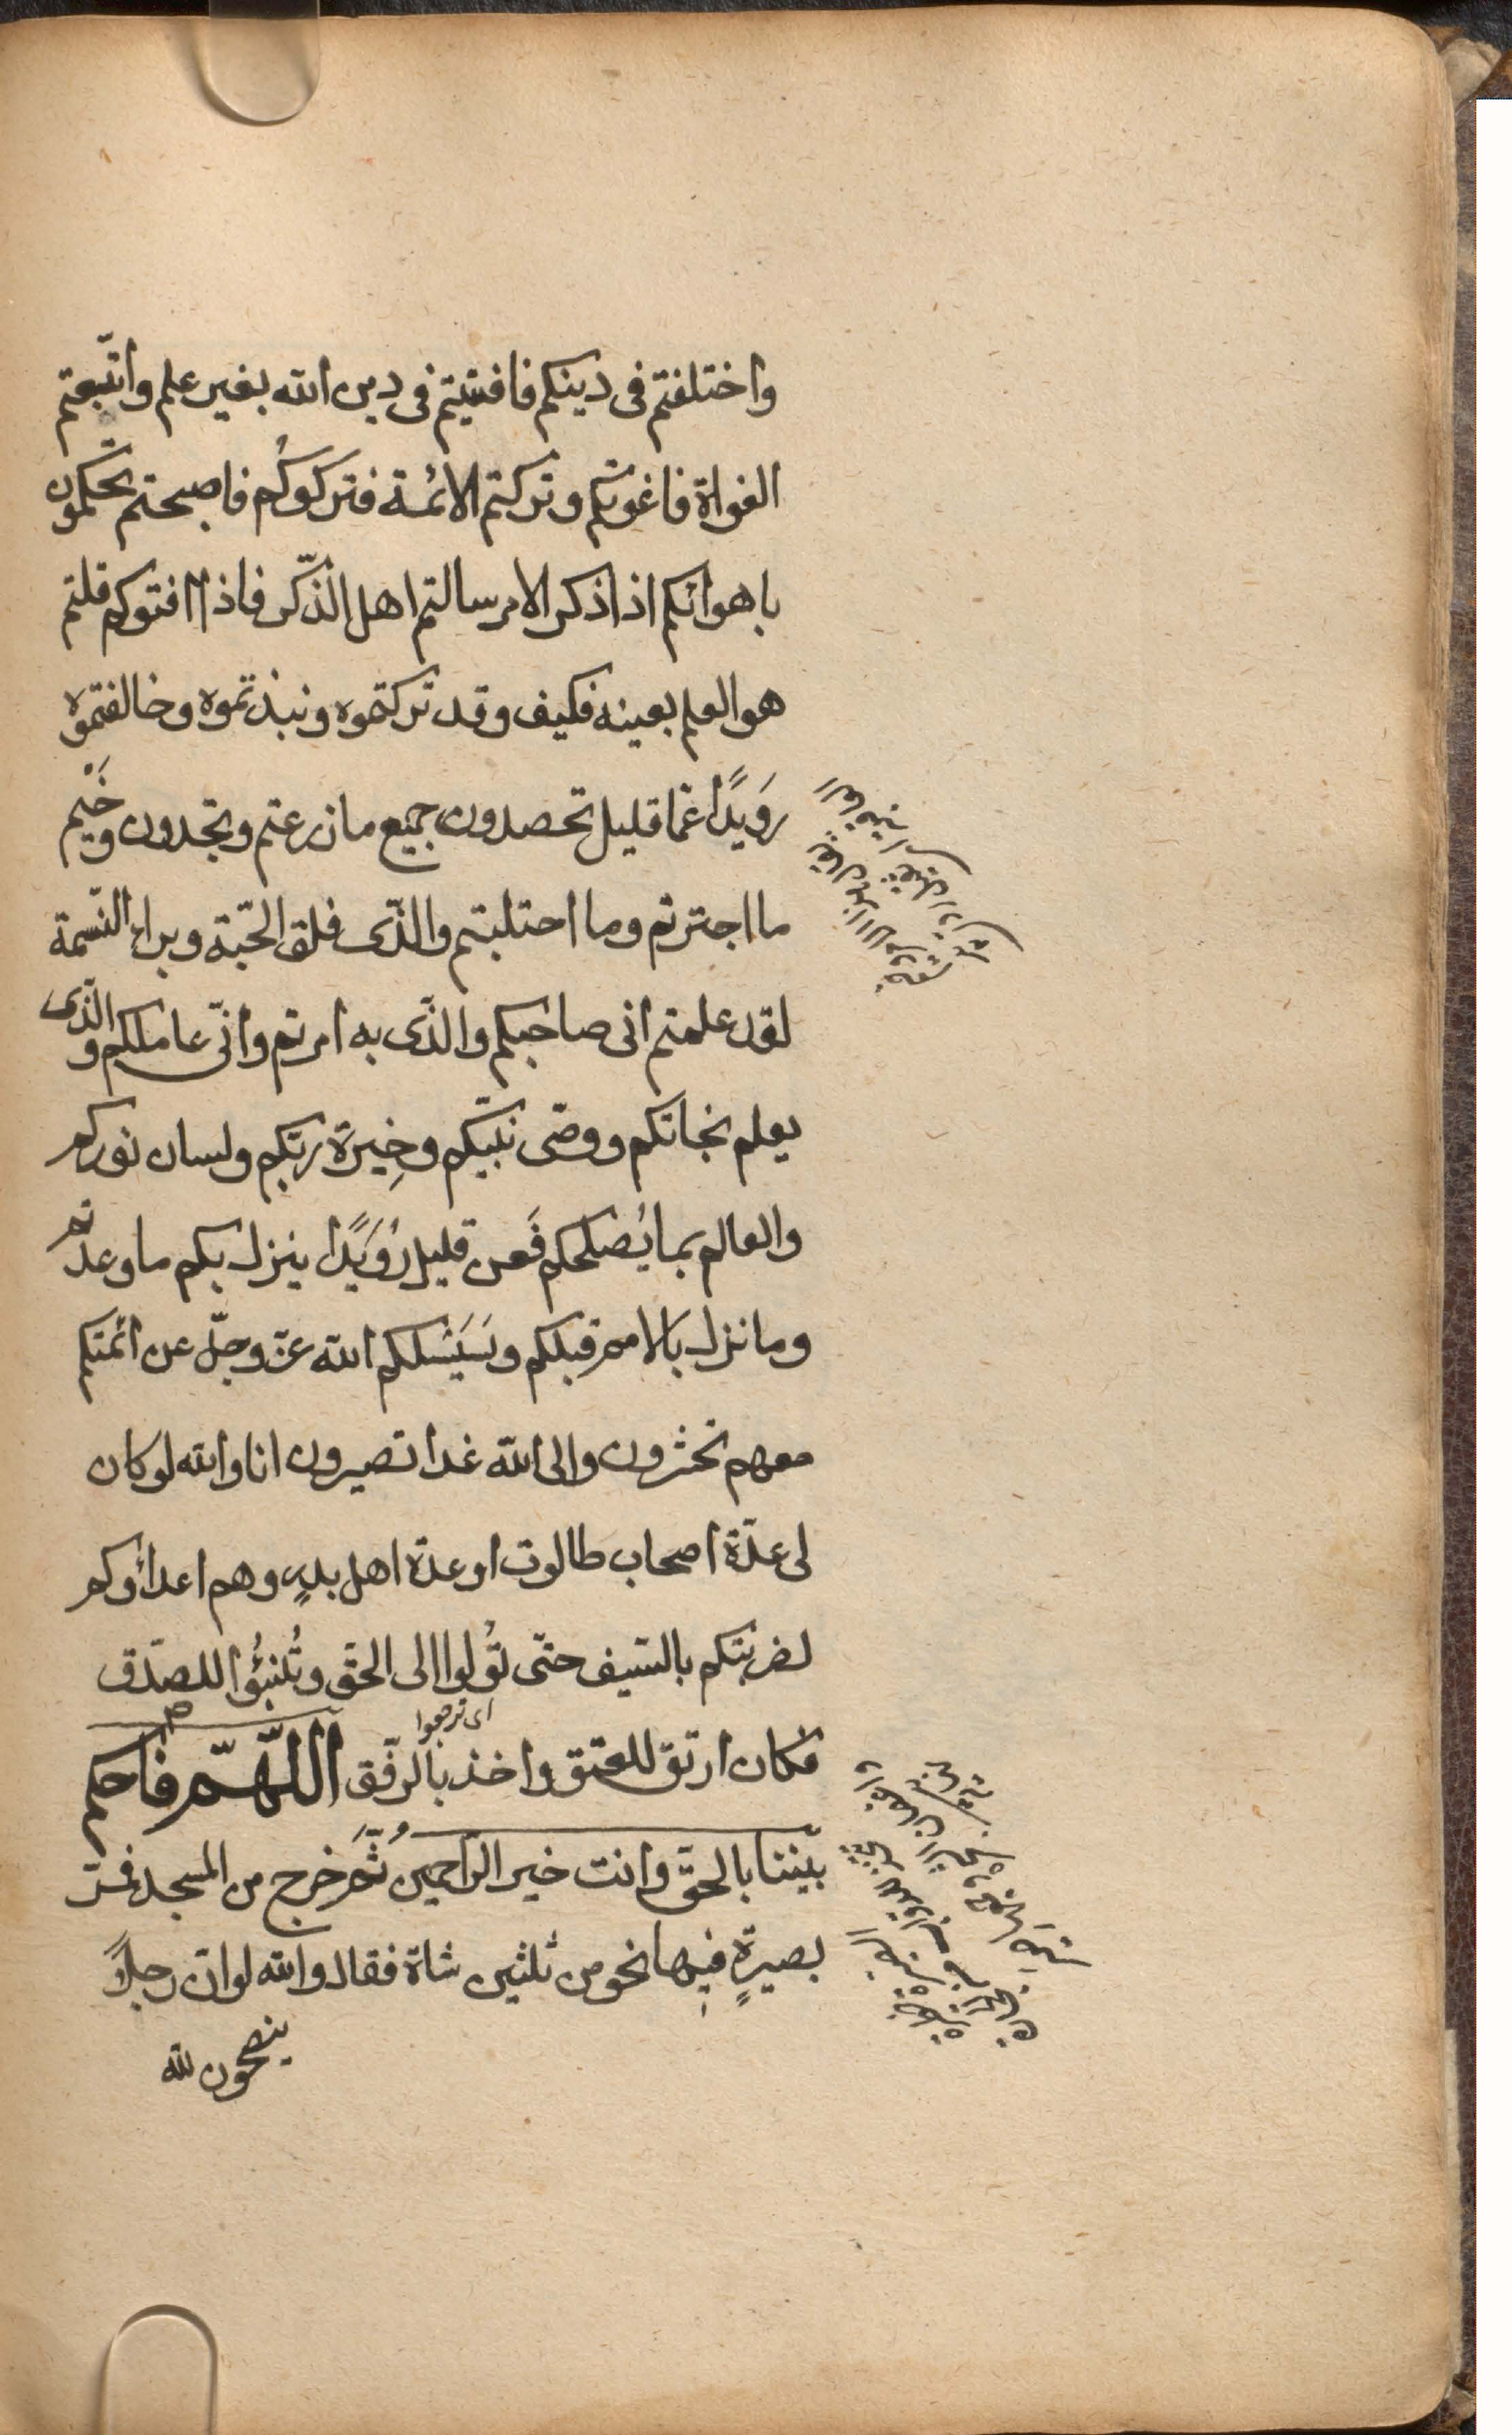 واختلفتم فى دينكم فافتيتم فى دين الله بغير علم واتّبعتم
الغواة فاغوتكم وتركتم الائمة فتركوكُم فاصبحتم تحكمون
باهوائكم اذا ذكر الامر سالتم اهل الذّكر فاذا افتوكم قلتم
هو العلم بعينه فكيف وقد تركتموه ونبذتموه وخالفتموه
رَوَيدًا عمّا قليل تحصدون جميع ما زرعتم وتجدون وَخَيم
ما اجترتم وما احتلبتم والذّى فلق الحّبة وبراء النّسمة
لقد علمتم انى صاحبكم والذّى به امرتم وانّى عاملكم والذّى
يعلم نجاتكم ووصّى نبيّكم وخِيرة ربّكم ولسان نوركم
والعالم بما يُصلحكم فَعن قليل رُوَيَدًا ينزل بكم ما وعدتم
وما نزل بالامم قبلكم وسَيَسْلكم الله عزّ وجلّ عن ائمتكم
معهم تحشرون والى الله غدا تصيرون انا والله لو كان
لى عدّة اصحاب طالوت او عدة اهل بدرٍ وهم اعداؤكم
لضربتكم بالسّيف حتّى تؤلوا الى الحقّ وتُنبئُوا للصدّق
اى ترجعوا
فكان ارتق للفتق واخذ بالرّفق اللّهمّ فاحكم
بيّننا بالحقّ وانت خير الرّاحمين ثُمّ خرج من المسجد فمرّ
بصيرةٍ فيها نحو من ثلثين شاة فقال والله لو ان رجلاً
ينصحون لله